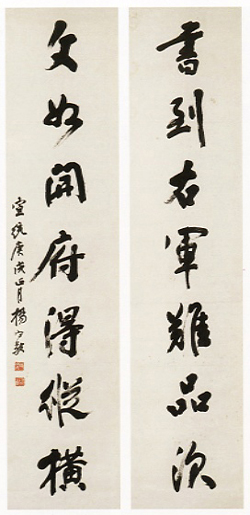 書到右軍難品次
文如開府得縱横
宣統庚戌正月楊守敬